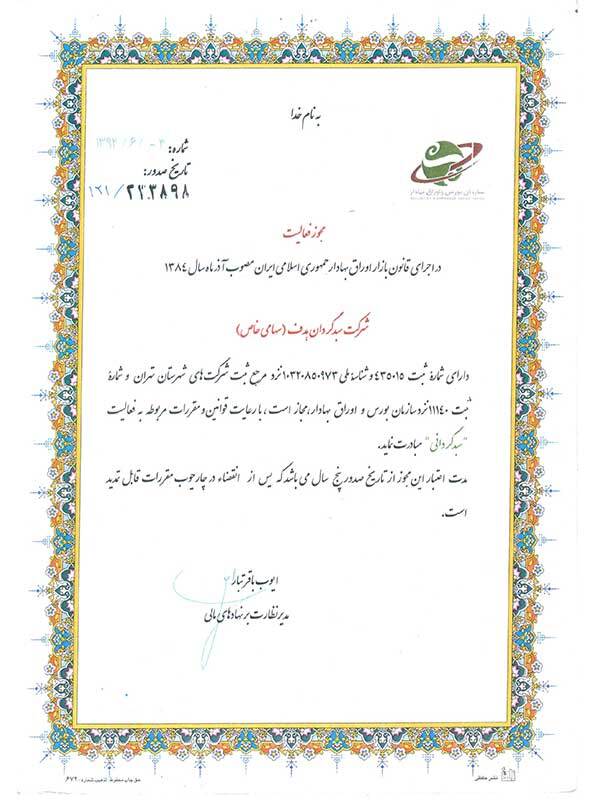 به نام خدا
شماره: ۱۳۹۲/۶/۰۴
تاریخ صدور:
۱۲۱/۲۳۳۸۹۸
سازمان بورس و اوراق بهادار
مجوز فعالیت
در اجرای قانون بازار اوراق بهادار جمهوری اسلامی ایران مصوب آذر ماه سال ۱۳۸٤
شرکت سبدگردان هدف (سهامی خاص)
دارای شمارهٔ ثبت ٤٣٥٠١٥ و شناسهٔ ملی ١٠٣٢٠٨٥٠٩٧٣ نزد مرجع ثبت شرکت‌های شهرستان تهران و شمارهٔ
ثبت ١١١٤٠ نزد سازمان بورس و اوراق بهادار، مجاز است، با رعایت قوانین و مقررات مربوطه به فعالیت
"سبدگردانی" مبادرت نماید.
مدت اعتبار این مجوز از تاریخ صدور پنج سال می باشد که پس از انقضاء در چارچوب مقررات قابل تمدید
است.
ایوب باقرتبار
مدیر نظارت بر نهادهای مالی
نشر حافظی
حق چاپ محفوظ تذهیب شماره: ۶۷۲